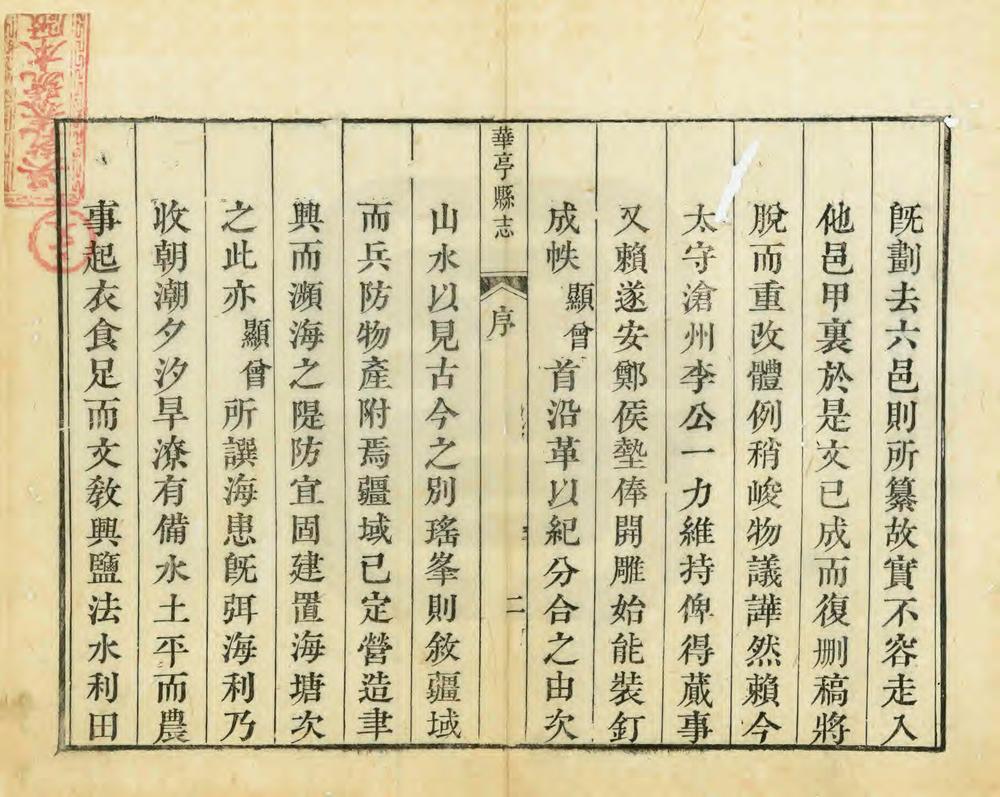 既劃去六邑則所纂故實不容走入
他邑甲裏於是文已成而復刪稿將
脫而重改體例稍峻物議譁然賴今
太守滄州李公一力維持俾得蕆事
又賴遂安鄭侯墊俸開雕始能裝釘
成帙顯曾首沿革以紀分合之由次
華亭縣志
序
二
山水以見古今之別瑤峯則敘疆域
而兵防物產附焉疆域已定營造聿
興而瀕海之隄防宜固建置海塘次
之此亦顯曾所譔海患既弭海利乃
收朝潮夕汐旱潦有備水土平而農
事起衣食足而文教興鹽法水利田